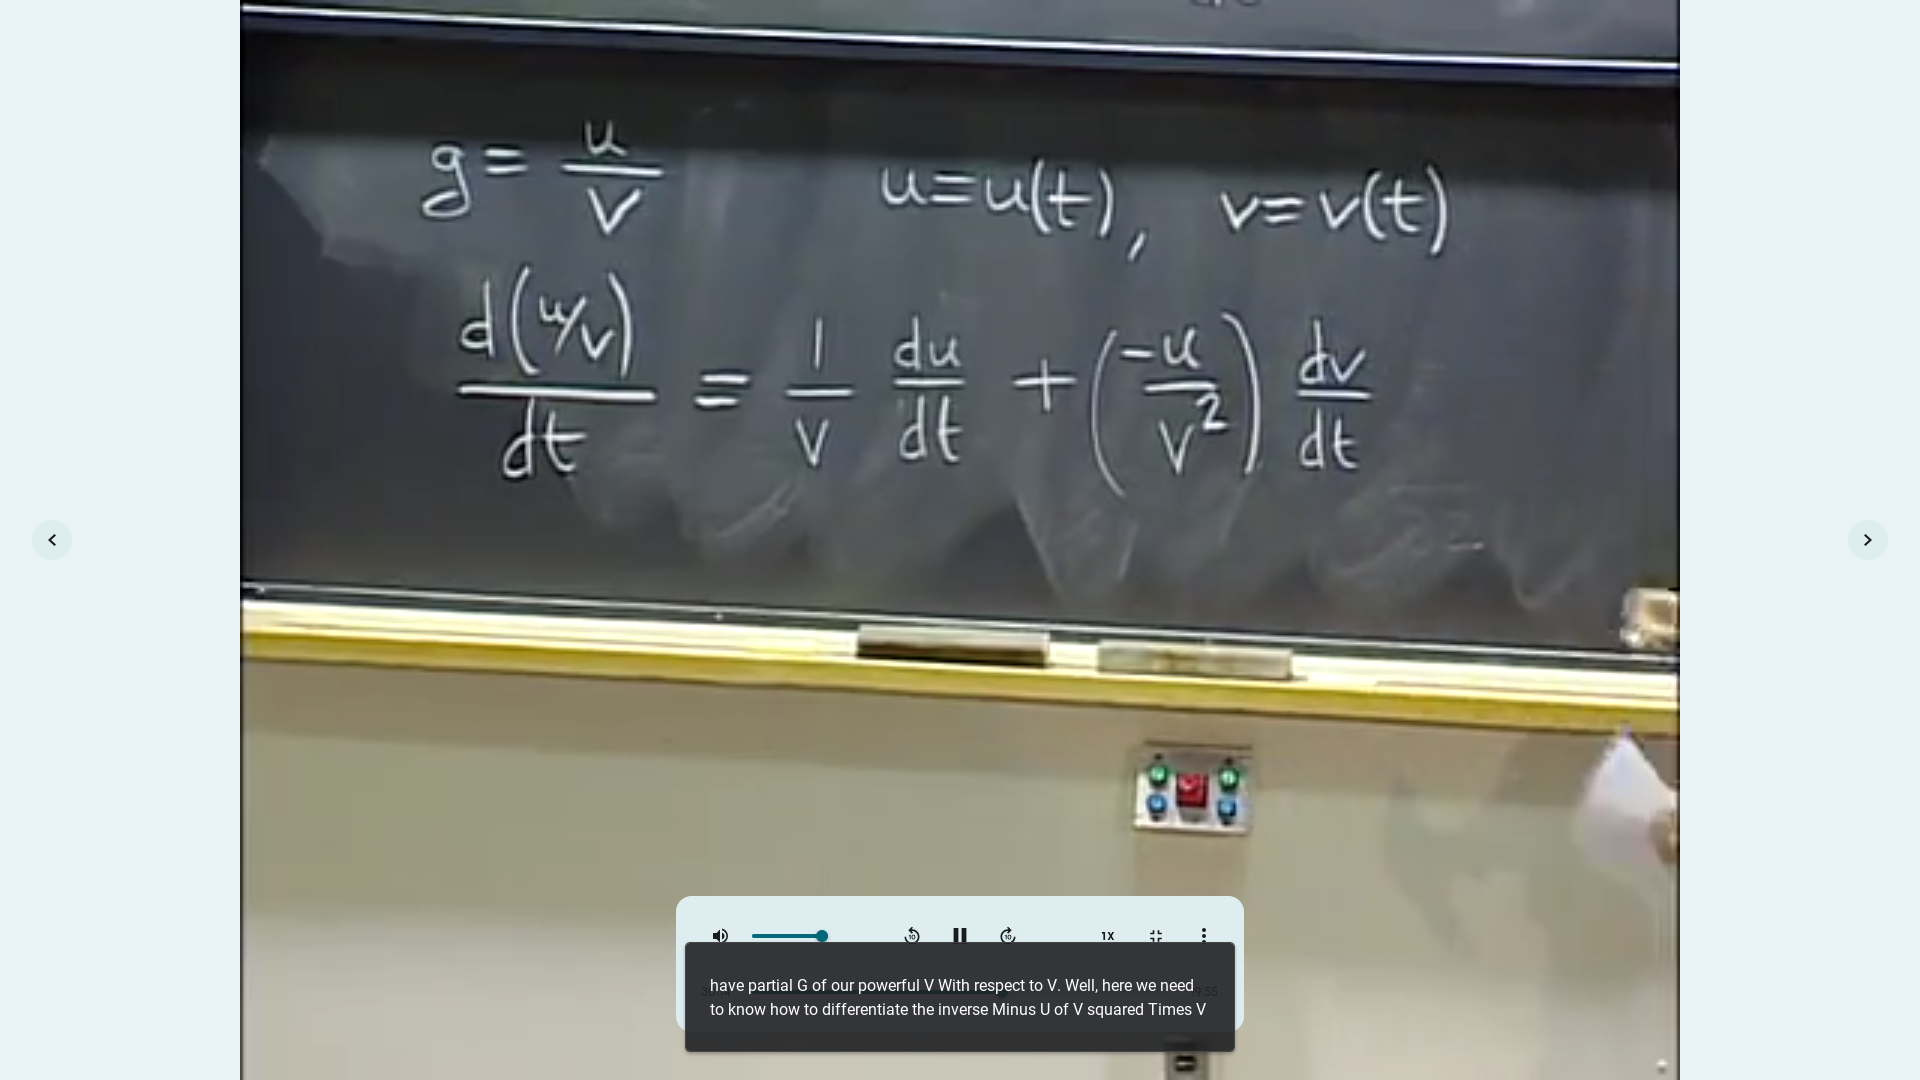 g = u/v    u = u(t), v = v(t)
d(u/v)/dt = 1/v du/dt + (-u/v²) dv/dt
10 10 1X
have partial G of our powerful V With respect to V. Well, here we need
to know how to differentiate the inverse Minus U of V squared Times V